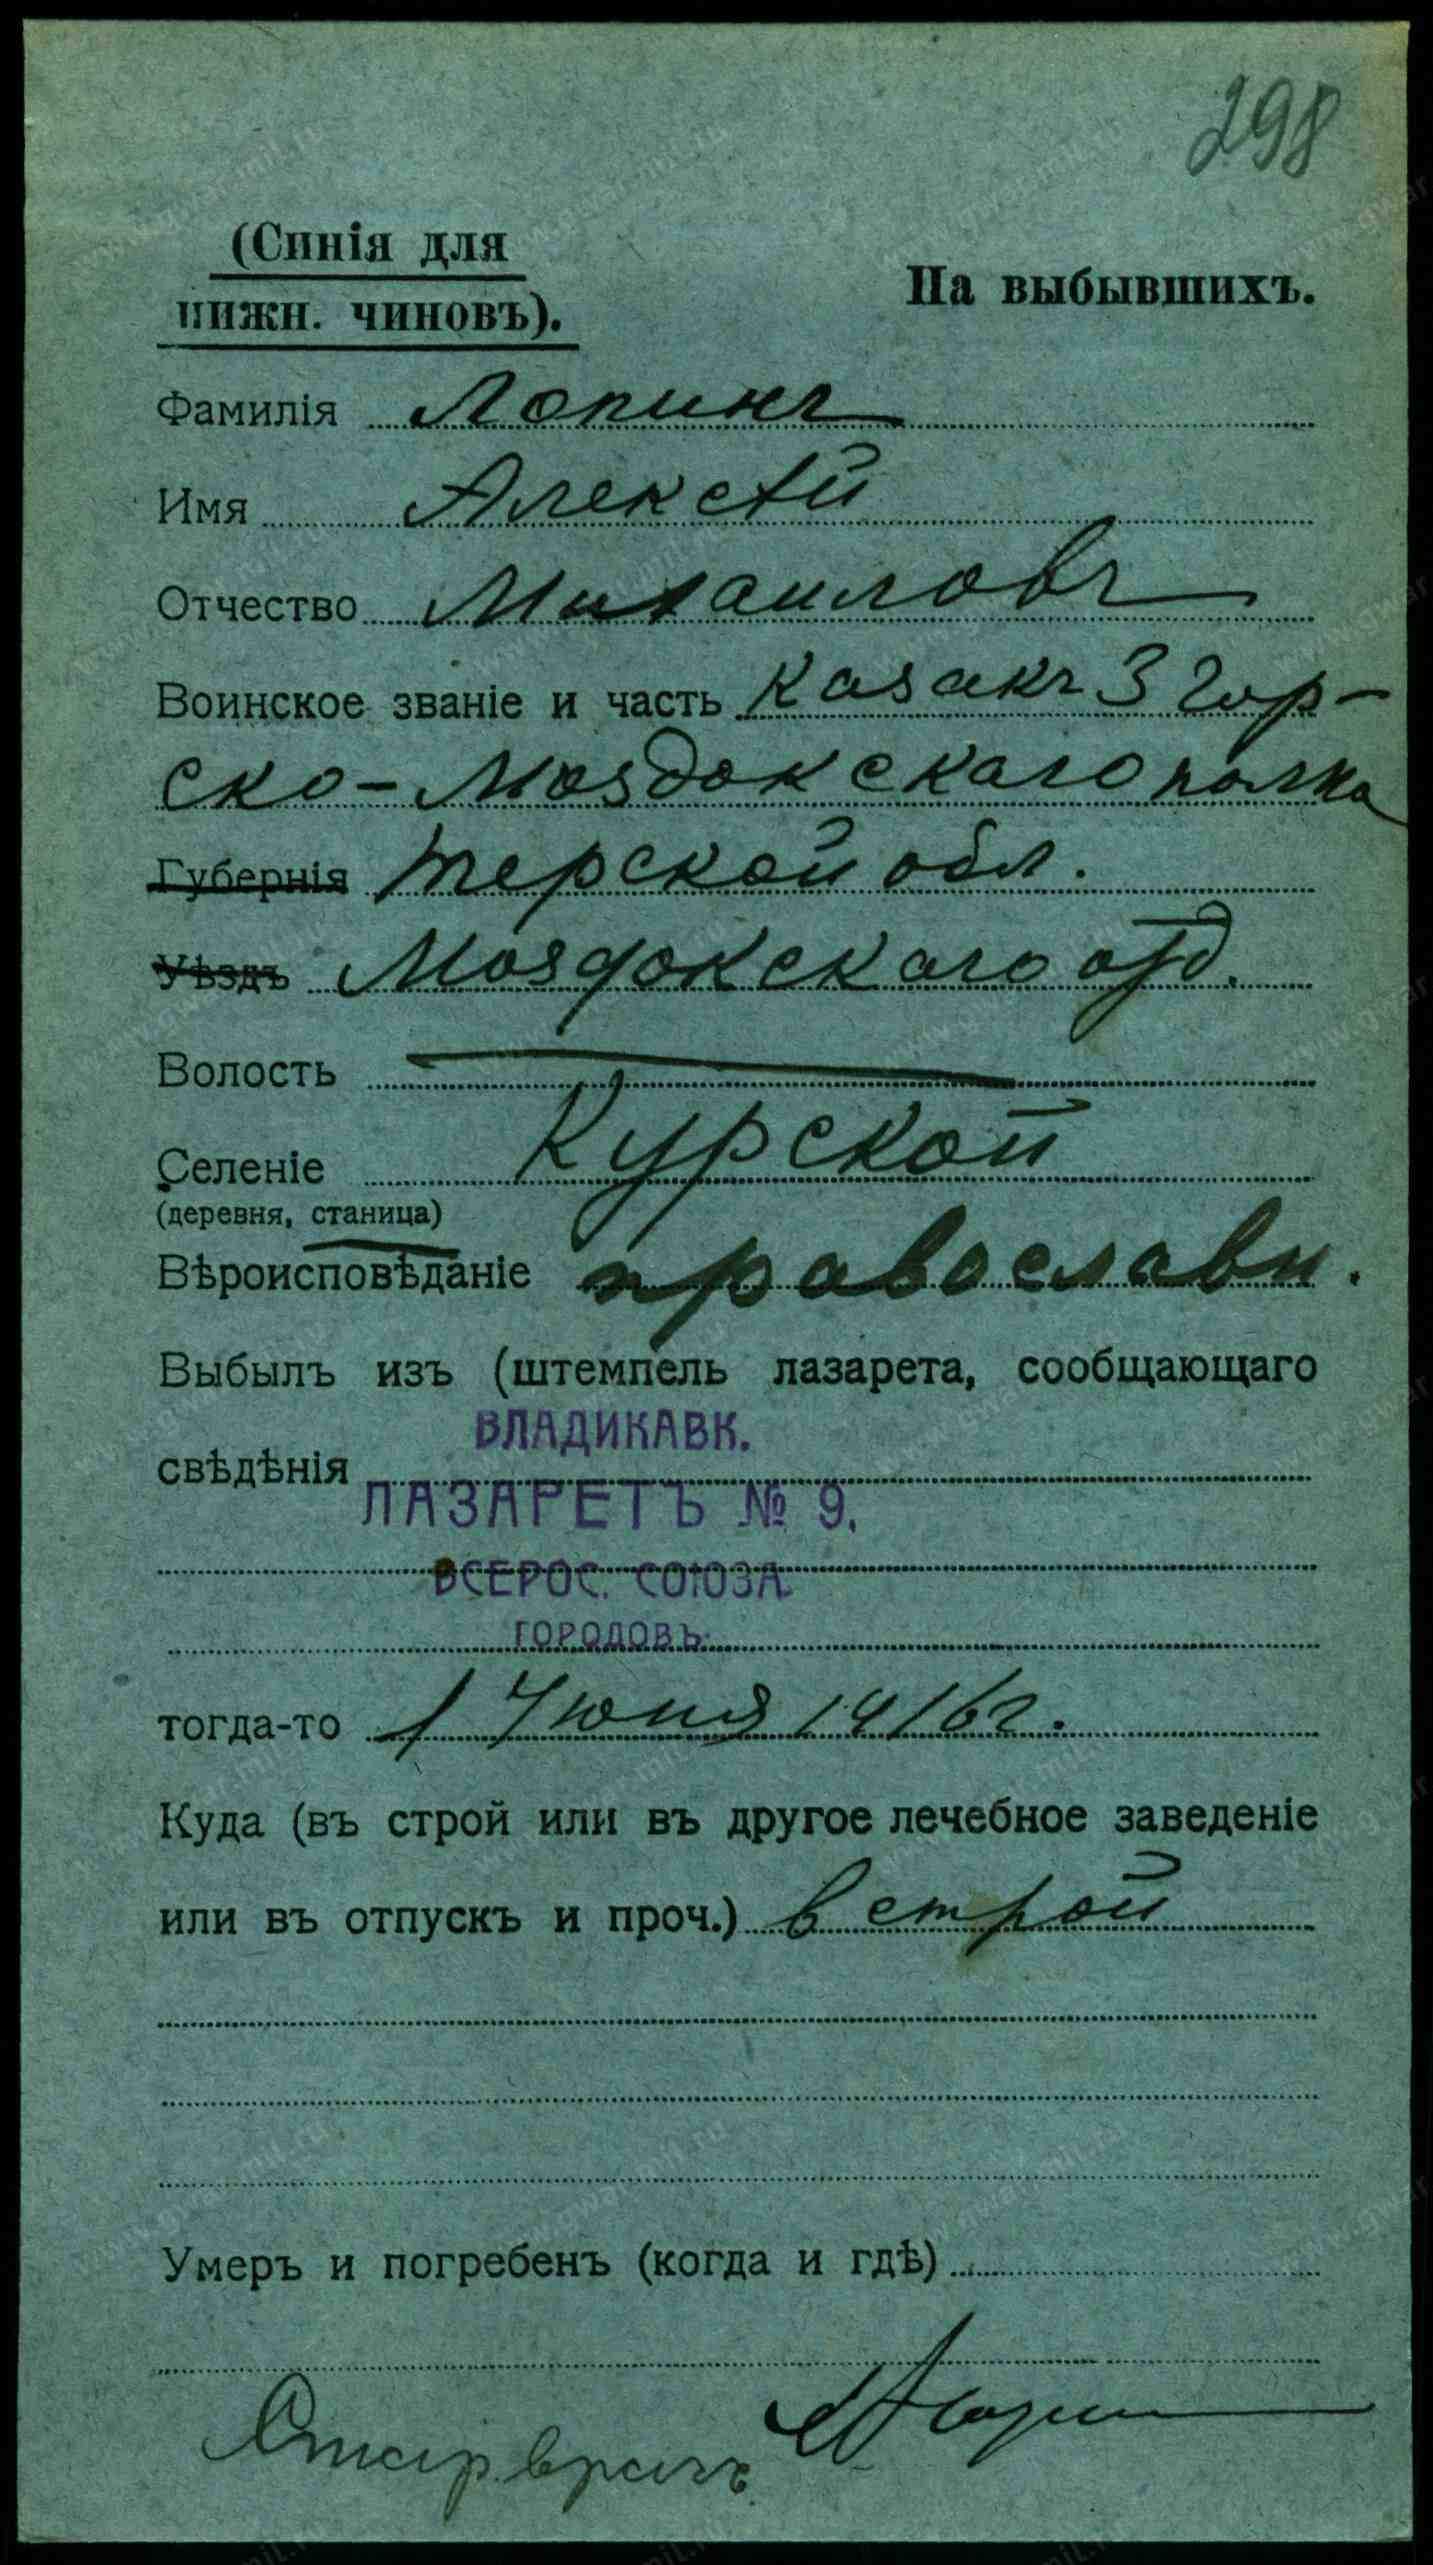 298
(Синія для
нижн. чиновъ).
На выбывшихъ.
Фамилія Лопинъ
Имя Алексѣй
Отчество Михаиловъ
Воинское званіе и часть казакъ 3 Гор-
ско-Моздокскаго полка
Губернія Терской обл.
Уѣздъ Моздокскаго отд.
Волость
Селеніе Курской
(деревня, станица)
Вѣроисповѣданіе православн.
Выбылъ изъ (штемпель лазарета, сообщающаго
ВЛАДИКАВК.
свѣдѣнія
ЛАЗАРЕТЪ № 9.
ВСЕРОС. СОЮЗА
ГОРОДОВЪ.
тогда-то 1 Июня 1916 г.
Куда (въ строй или въ другое лечебное заведеніе
или въ отпускъ и проч.) в строй
Умеръ и погребенъ (когда и гдѣ)
Стар. врачъ